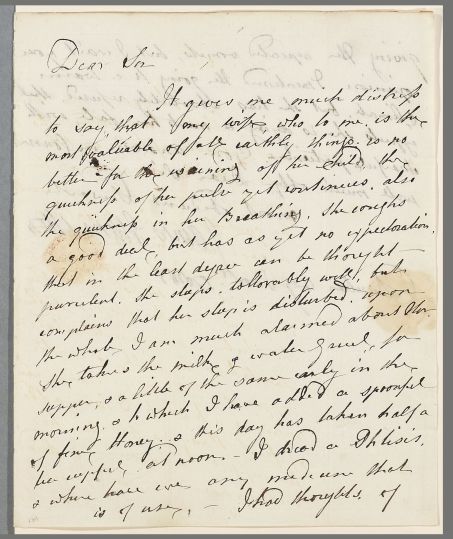 Dear Sir
It gives me much distress
to say, that my wife who to me is the
most valuable of all earthly things is no
better for the weaning off her Child, the
quickness of her pulse yet continues, also
the quickness in her Breathing, She coughs
a good deal, but has as yet no expectoration,
that in the least degree can be thought
purulent. She sleeps tollerably well, but
complains that her sleep is disturbed. upon
the whole I am much alarmed about Her
She takes the milk & water Gruel, for
supper, & a little of the same early in the
morning, & to which I have added a spoonful
of fine Honey. & this day has taken half a
at noon. - I dread a Phtisis,
& where have we any medicine that
is of use, - I had thoughts, of